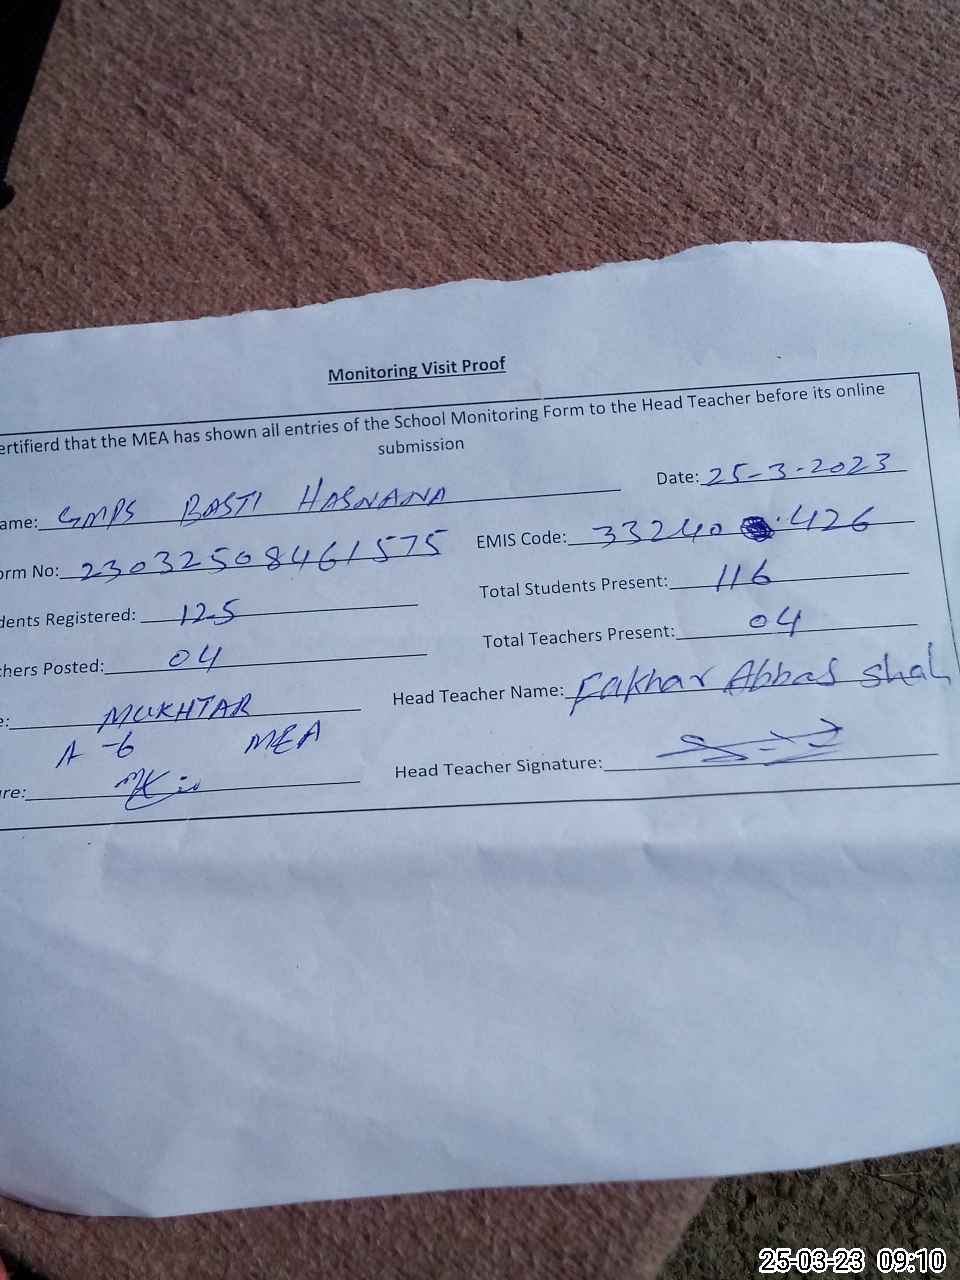 Monitoring Visit Proof
ertifierd that the MEA has shown all entries of the School Monitoring Form to the Head Teacher before its online
submission
ame: GMPS BASTI HASNANA Date: 25-3-2023
orm No: 23032508461575 EMIS Code: 33240 426
dents Registered: 125 Total Students Present: 116
chers Posted: 04 Total Teachers Present: 04
e: MUKHTAR Head Teacher Name: Fakhar Abbas Shah
A-6 MEA
re: Head Teacher Signature:
25-03-23 09:10